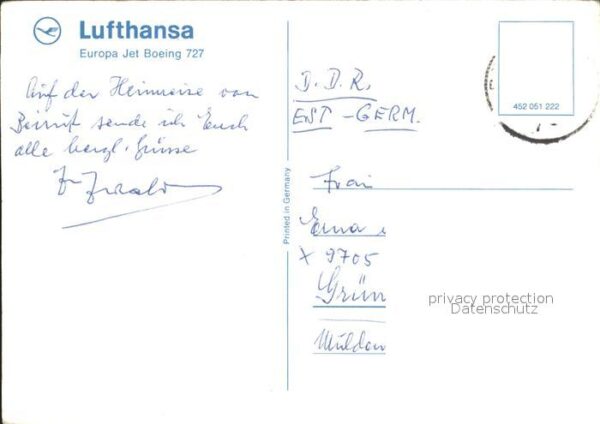 Lufthansa
Europa Jet Boeing 727
452 051 222
Auf der Heimreise von
Beirut sende ich Euch
alle herzl. Grüsse
D.D.R.
EAST - GERM.
Frau
Erna
X 9705
Grün
Muldan
Printed in Germany
privacy protection
Datenschutz